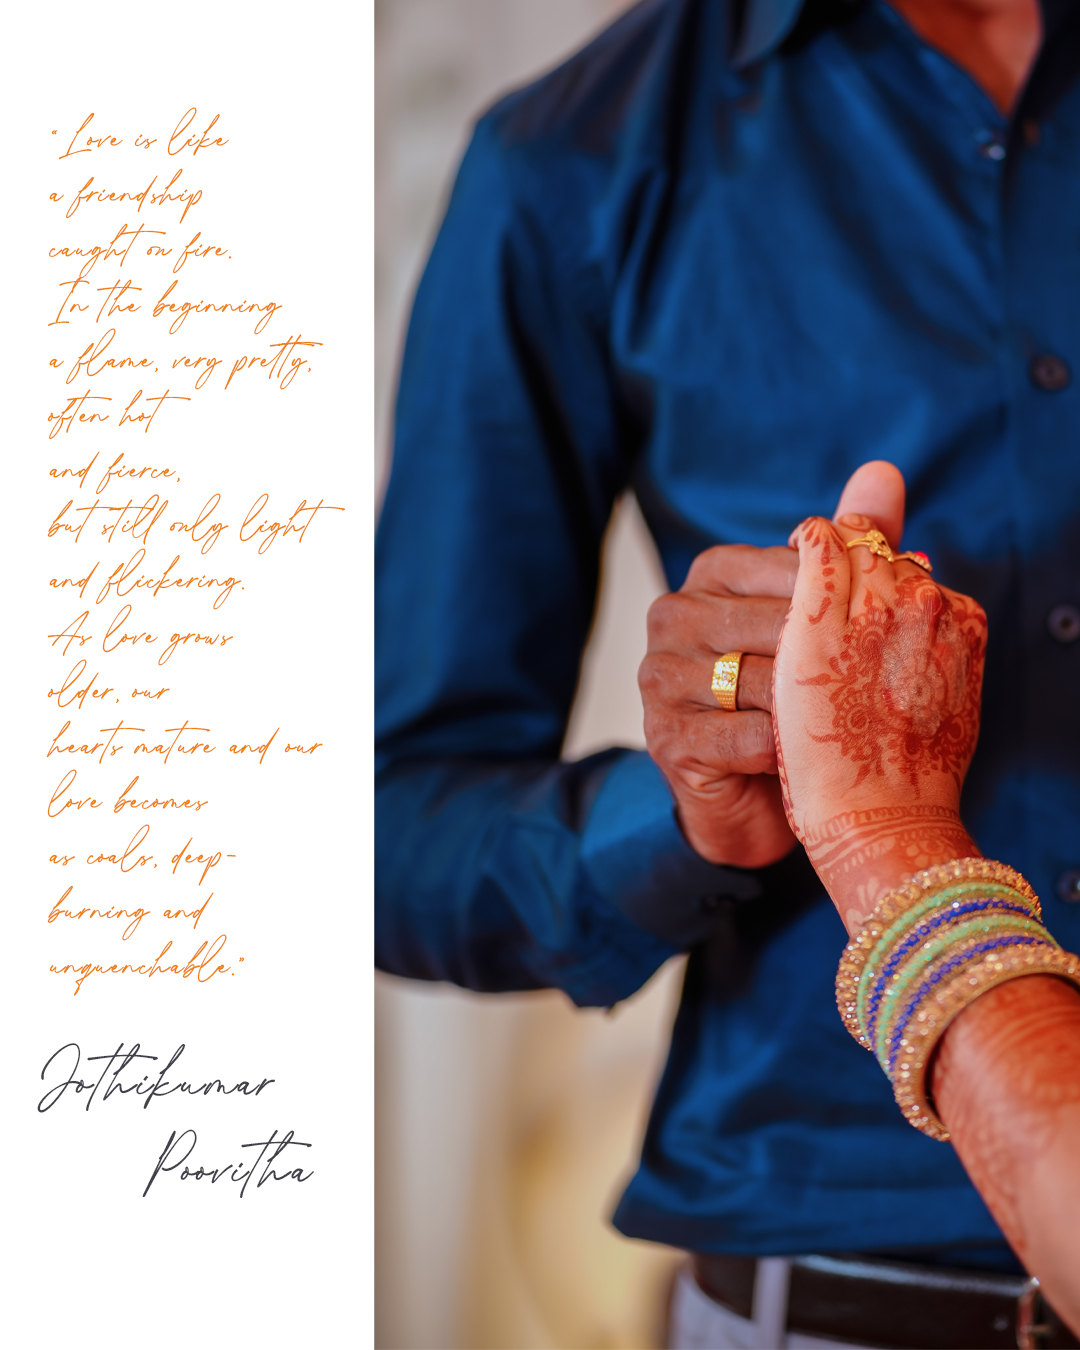 "Love is like
a friendship
caught on fire.
In the beginning
a flame, very pretty,
often hot
and fierce,
but still only light
and flickering.
As love grows
older, our
hearts mature and our
love becomes
as coals, deep-
burning and
unquenchable."
Jothikumar
Poovitha